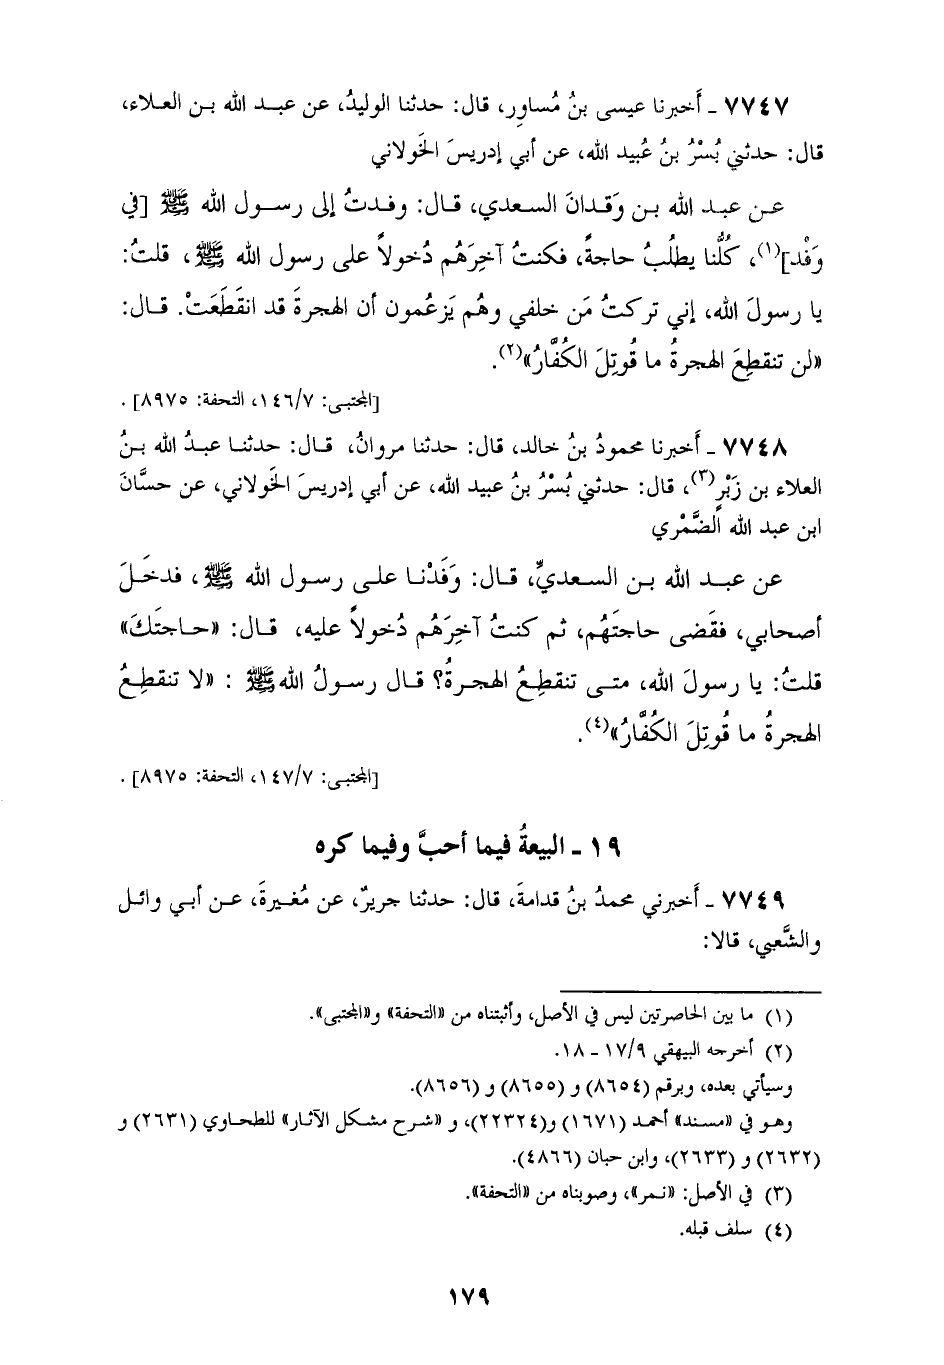 ٧٧٤٧ ـ أَخبرنا عيسى بنُ مُساوِر، قال: حدثنا الوليدُ، عن عبد الله بن العلاء،
قال: حدثني بُسْرُ بنُ عُبيد الله، عن أبي إدريسَ الخَولاني
عن عبد الله بن وَقدانَ السعدي، قال: وفدتُ إلى رسول الله ﷺ [في
وَفْد](١)، كُلُّنا يطلُبُ حاجةً، فكنتُ آخِرَهُم دُخولاً على رسول الله ﷺ، قلتُ:
يا رسولَ الله، إني تركتُ مَن خلفي وهُم يَزعُمون أن الهجرةَ قد انقَطَعَتْ. قال:
«لن تنقطِعَ الهجرةُ ما قُوتِلَ الكُفَّارُ»(٢).
[المجتبى: ١٤٦/٧، التحفة: ٨٩٧٥] .
٧٧٤٨ ـ أَخبرنا محمودُ بنُ خالد، قال: حدثنا مروانُ، قال: حدثنا عبدُ الله بنُ
العلاء بن زَبْرٍ(٣)، قال: حدثني بُسْرُ بنُ عبيد الله، عن أبي إدريسَ الخَولاني، عن حسَّانَ
ابن عبد الله الضَّمْري
عن عبد الله بن السعديِّ، قال: وَفَدْنا على رسول الله ﷺ، فدخَلَ
أصحابي، فقَضى حاجتَهُم، ثم كنتُ آخِرَهُم دُخولاً عليه، قال: «حاجتَكَ»
قلتُ: يا رسولَ الله، متى تنقطِعُ الهجرةُ؟ قال رسولُ الله ﷺ : «لا تنقطِعُ
الهجرةُ ما قُوتِلَ الكُفَّارُ»(٤).
[المجتبى: ١٤٧/٧، التحفة: ٨٩٧٥] .
١٩ ـ البيعةُ فيما أحبَّ وفيما كره
٧٧٤٩ ـ أَخبرني محمدُ بنُ قدامةَ، قال: حدثنا جريرٌ، عن مُغيرةَ، عن أبي وائل
والشَّعبي، قالا:
(١) ما بين الحاصرتين ليس في الأصل، وأثبتناه من «التحفة» و«المجتبى».
(٢) أخرجه البيهقي ١٧/٩ – ١٨.
وسيأتي بعده، وبرقم (٨٦٥٤) و (٨٦٥٥) و (٨٦٥٦).
وهو في «مسند» أحمد (١٦٧١) و(٢٢٣٢٤)، و «شرح مشكل الآثار» للطحاوي (٢٦٣١) و
(٢٦٣٢) و (٢٦٣٣)، وابن حبان (٤٨٦٦).
(٣) في الأصل: «نمر»، وصوبناه من «التحفة».
(٤) سلف قبله.
١٧٩